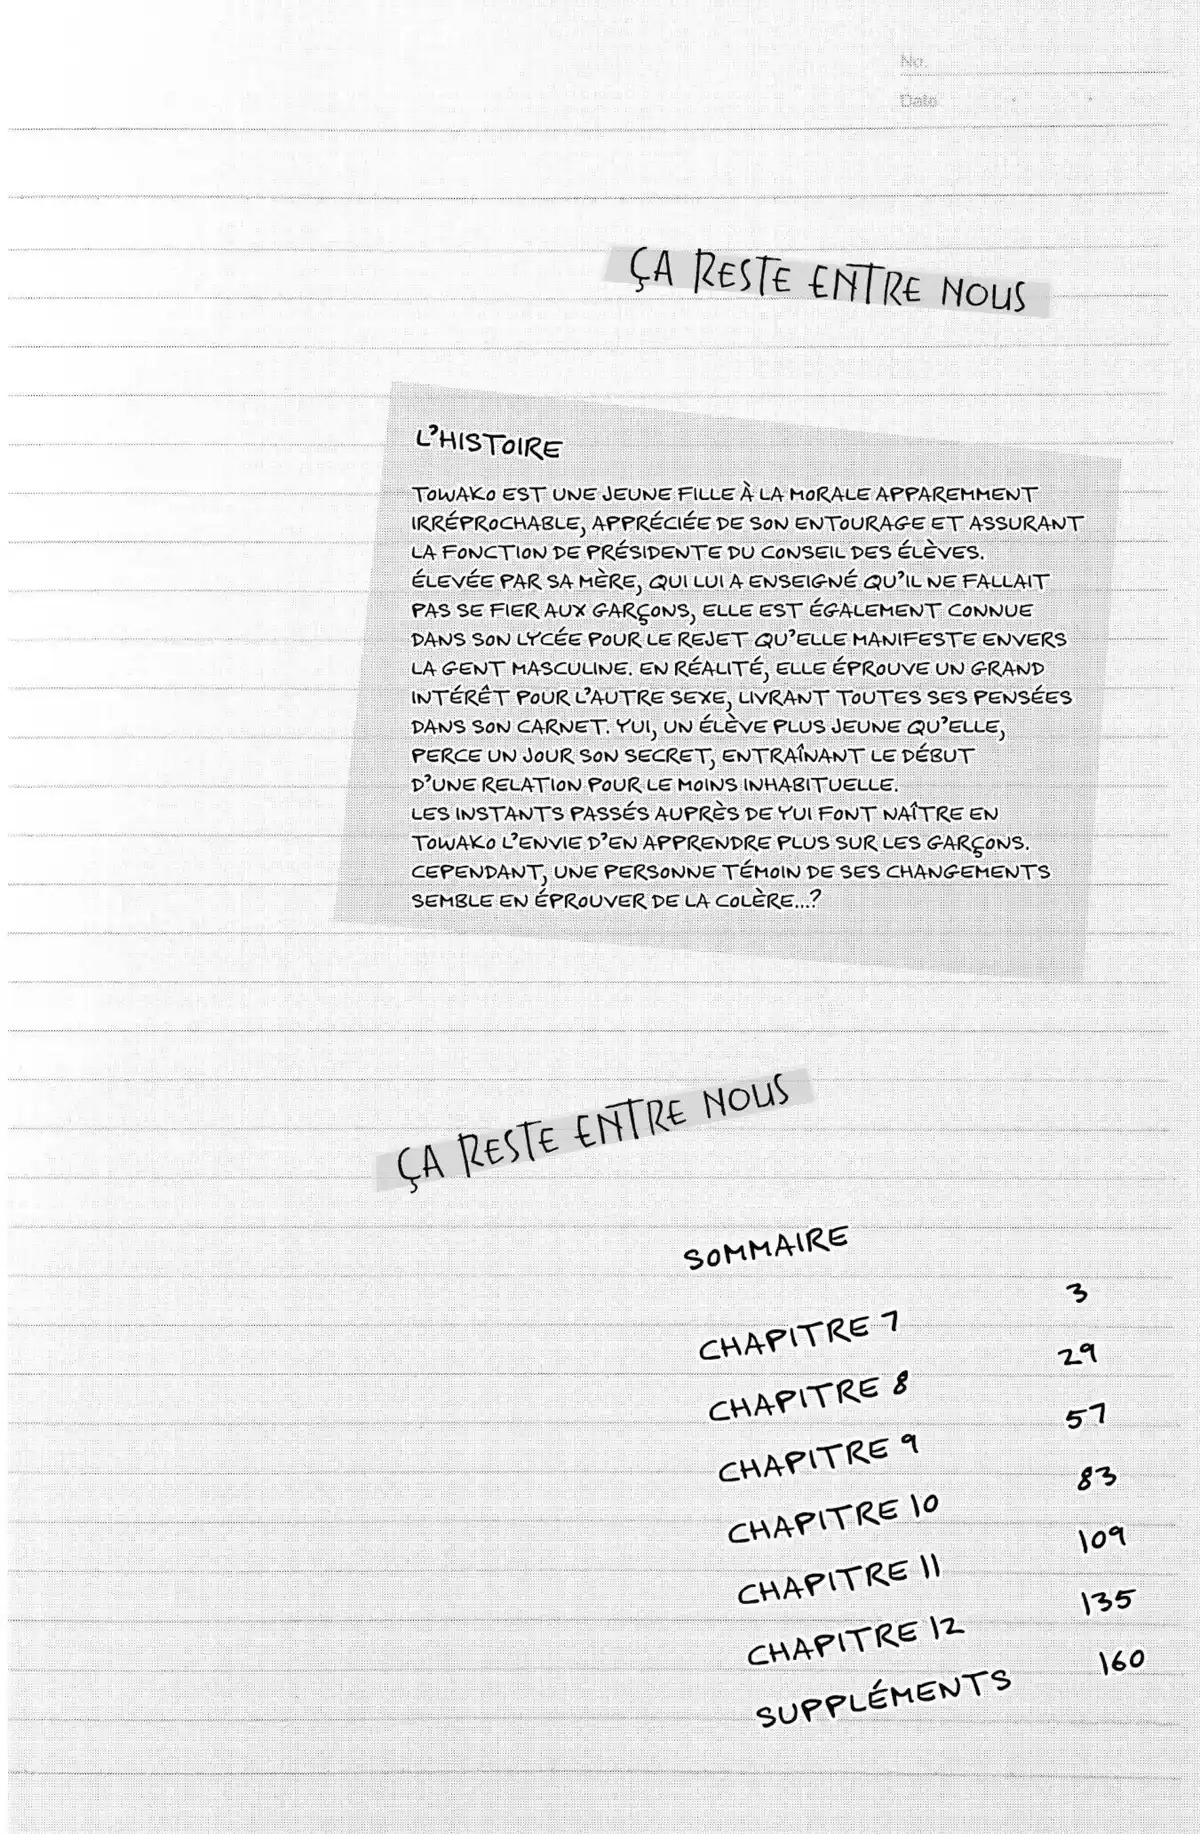 No.
Date
ÇA RESTE ENTRE NOUS
L'HISTOIRE
TOWAKO EST UNE JEUNE FILLE À LA MORALE APPAREMMENT
IRRÉPROCHABLE, APPRÉCIÉE DE SON ENTOURAGE ET ASSURANT
LA FONCTION DE PRÉSIDENTE DU CONSEIL DES ÉLÈVES.
ÉLEVÉE PAR SA MÈRE, QUI LUI A ENSEIGNÉ QU'IL NE FALLAIT
PAS SE FIER AUX GARÇONS, ELLE EST ÉGALEMENT CONNUE
DANS SON LYCÉE POUR LE REJET QU'ELLE MANIFESTE ENVERS
LA GENT MASCULINE. EN RÉALITÉ, ELLE ÉPROUVE UN GRAND
INTÉRÊT POUR L'AUTRE SEXE, LIVRANT TOUTES SES PENSÉES
DANS SON CARNET. YUI, UN ÉLÈVE PLUS JEUNE QU'ELLE,
PERCE UN JOUR SON SECRET, ENTRAÎNANT LE DÉBUT
D'UNE RELATION POUR LE MOINS INHABITUELLE.
LES INSTANTS PASSÉS AUPRÈS DE YUI FONT NAÎTRE EN
TOWAKO L'ENVIE D'EN APPRENDRE PLUS SUR LES GARÇONS.
CEPENDANT, UNE PERSONNE TÉMOIN DE SES CHANGEMENTS
SEMBLE EN ÉPROUVER DE LA COLÈRE...?
ÇA RESTE ENTRE NOUS
SOMMAIRE
CHAPITRE 7 3
CHAPITRE 8 29
CHAPITRE 9 57
CHAPITRE 10 83
CHAPITRE 11 109
CHAPITRE 12 135
SUPPLÉMENTS 160